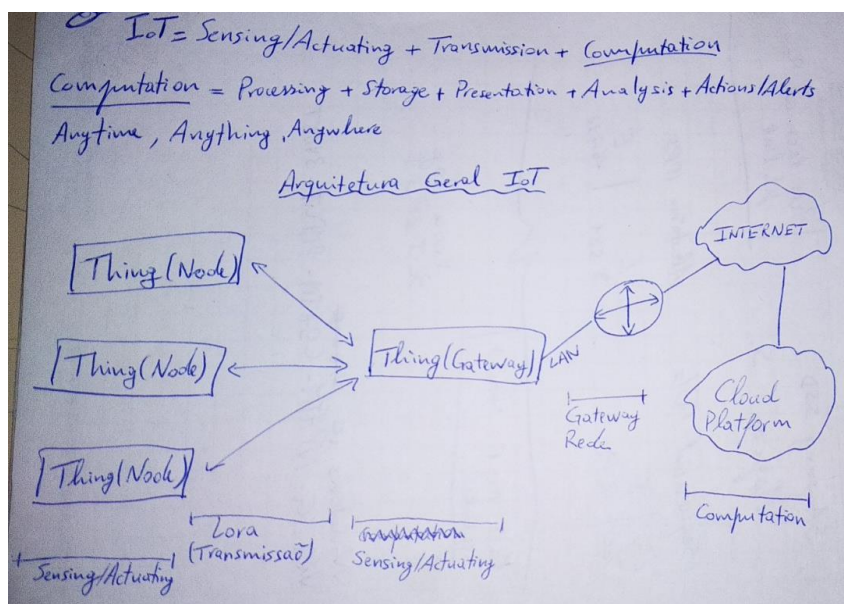 IoT = Sensing/Actuating + Transmission + Computation
Computation = Processing + Storage + Presentation + Analysis + Actions/Alerts
Anytime, Anything, Anywhere
Arquitetura Geral IoT
INTERNET
Thing (Node)
Thing (Node)
Thing (Gateway)
LAN
Thing (Node)
Gateway
Rede
Cloud
Platform
Lora
(Transmissaõ)
Sensing/Actuating
Computation
Sensing/Actuating